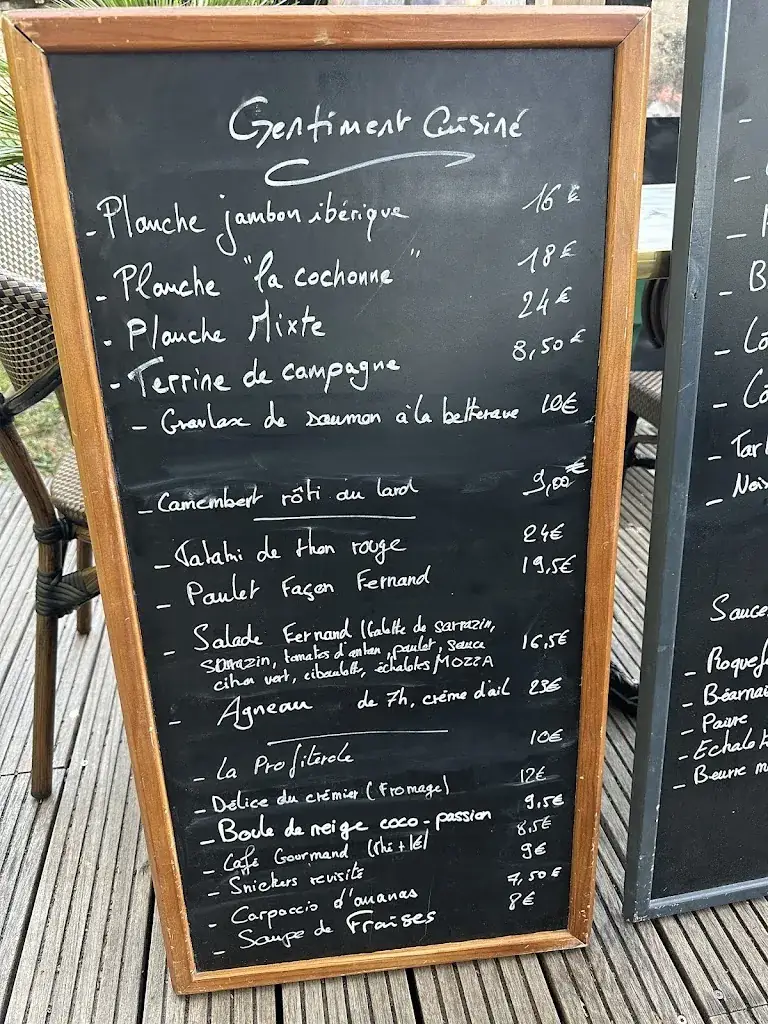 Gentiment Cuisiné
- Planche jambon ibérique 16€
- Planche "la cochonne" 18€
- Planche Mixte 24€
- Terrine de campagne 8,50€
- Gravlax de saumon à la betterave 10€
- Camembert rôti au lard 9,00€
- Tatahi de thon rouge 24€
- Poulet Façon Fernand 19,5€
- Salade Fernand (Galette de sarrazin,
sarrazin, tomates d'antan, poulet, sauce 16,5€
citron vert, ciboulette, échalotes MOZZA
- Agneau de 7h, crème d'ail 25€
- La Profiterole 10€
- Délice du crémier (Fromage) 12€
- Boule de neige coco-passion 9,5€
- Café Gourmand (thé + 1€) 8,5€
- Snickers revisité 9€
- Carpaccio d'ananas 7,50€
- Soupe de Fraises 8€
- B
- Cô
- Cô
- Tar
- Noix
Sauce
- Roquef
- Béarnai
- Poivre
- Echalot
- Beurre m